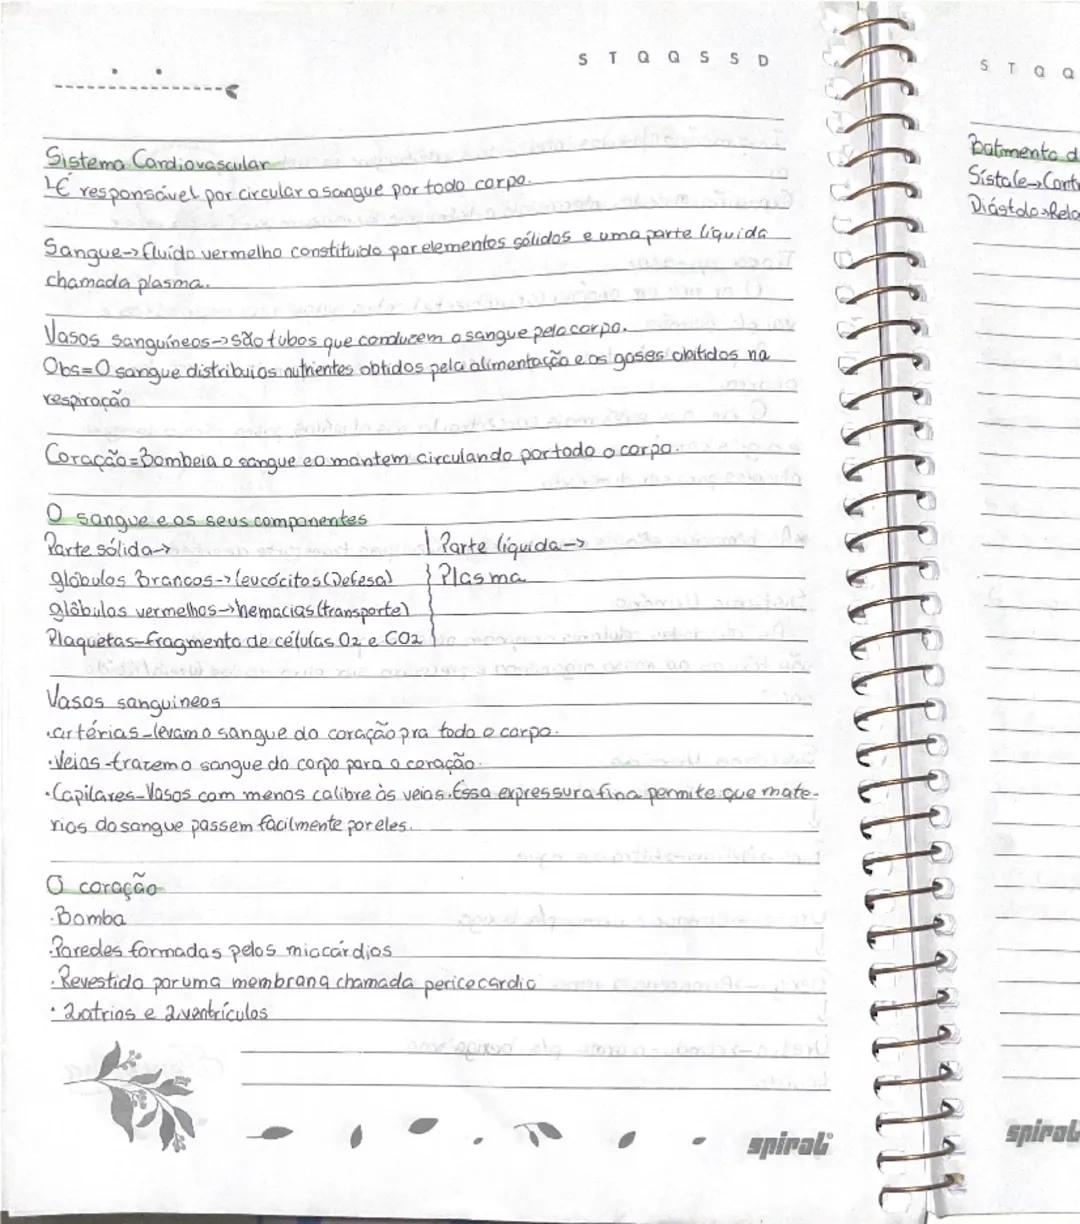 S T Q Q S S D
Sistema Cardiovascular
↳É responsável por circular o sangue por todo corpo.
Sangue-> fluído vermelho constituido por elementos sólidos e uma parte líquida
chamada plasma.
Vasos sanguíneos->são tubos que conduzem o sangue pelo corpo.
Obs=O sangue distribui os nutrientes obtidos pela alimentação e os gases obitidos na
respiração
Coração=Bombeia o sangue e o mantem circulando por todo o corpo.
O sangue e os seus componentes
Parte sólida-> Parte líquida->
glóbulos Brancos->leucócitos (Defesa) Plasma
glóbulos vermelhos->hemacias (transporte)
Plaquetas-fragmento de células O2 e CO2
Vasos sanguineos
·artérias-levam o sangue do coração pra todo o corpo.
·Veias-trazem o sangue do corpo para o coração.
·Capilares-Vasos com menos calibre às veias. Essa expressura fina permite que mate-
rios do sangue passem facilmente por eles.
O coração
·Bomba
·Paredes formadas pelos miocárdios
·Revestido por uma membrana chamada pericecardio
·2 atrios e 2 ventrículos
spiral
S T Q Q
Batimento d
Sístole->Contr
Diástole->Rela
spiral